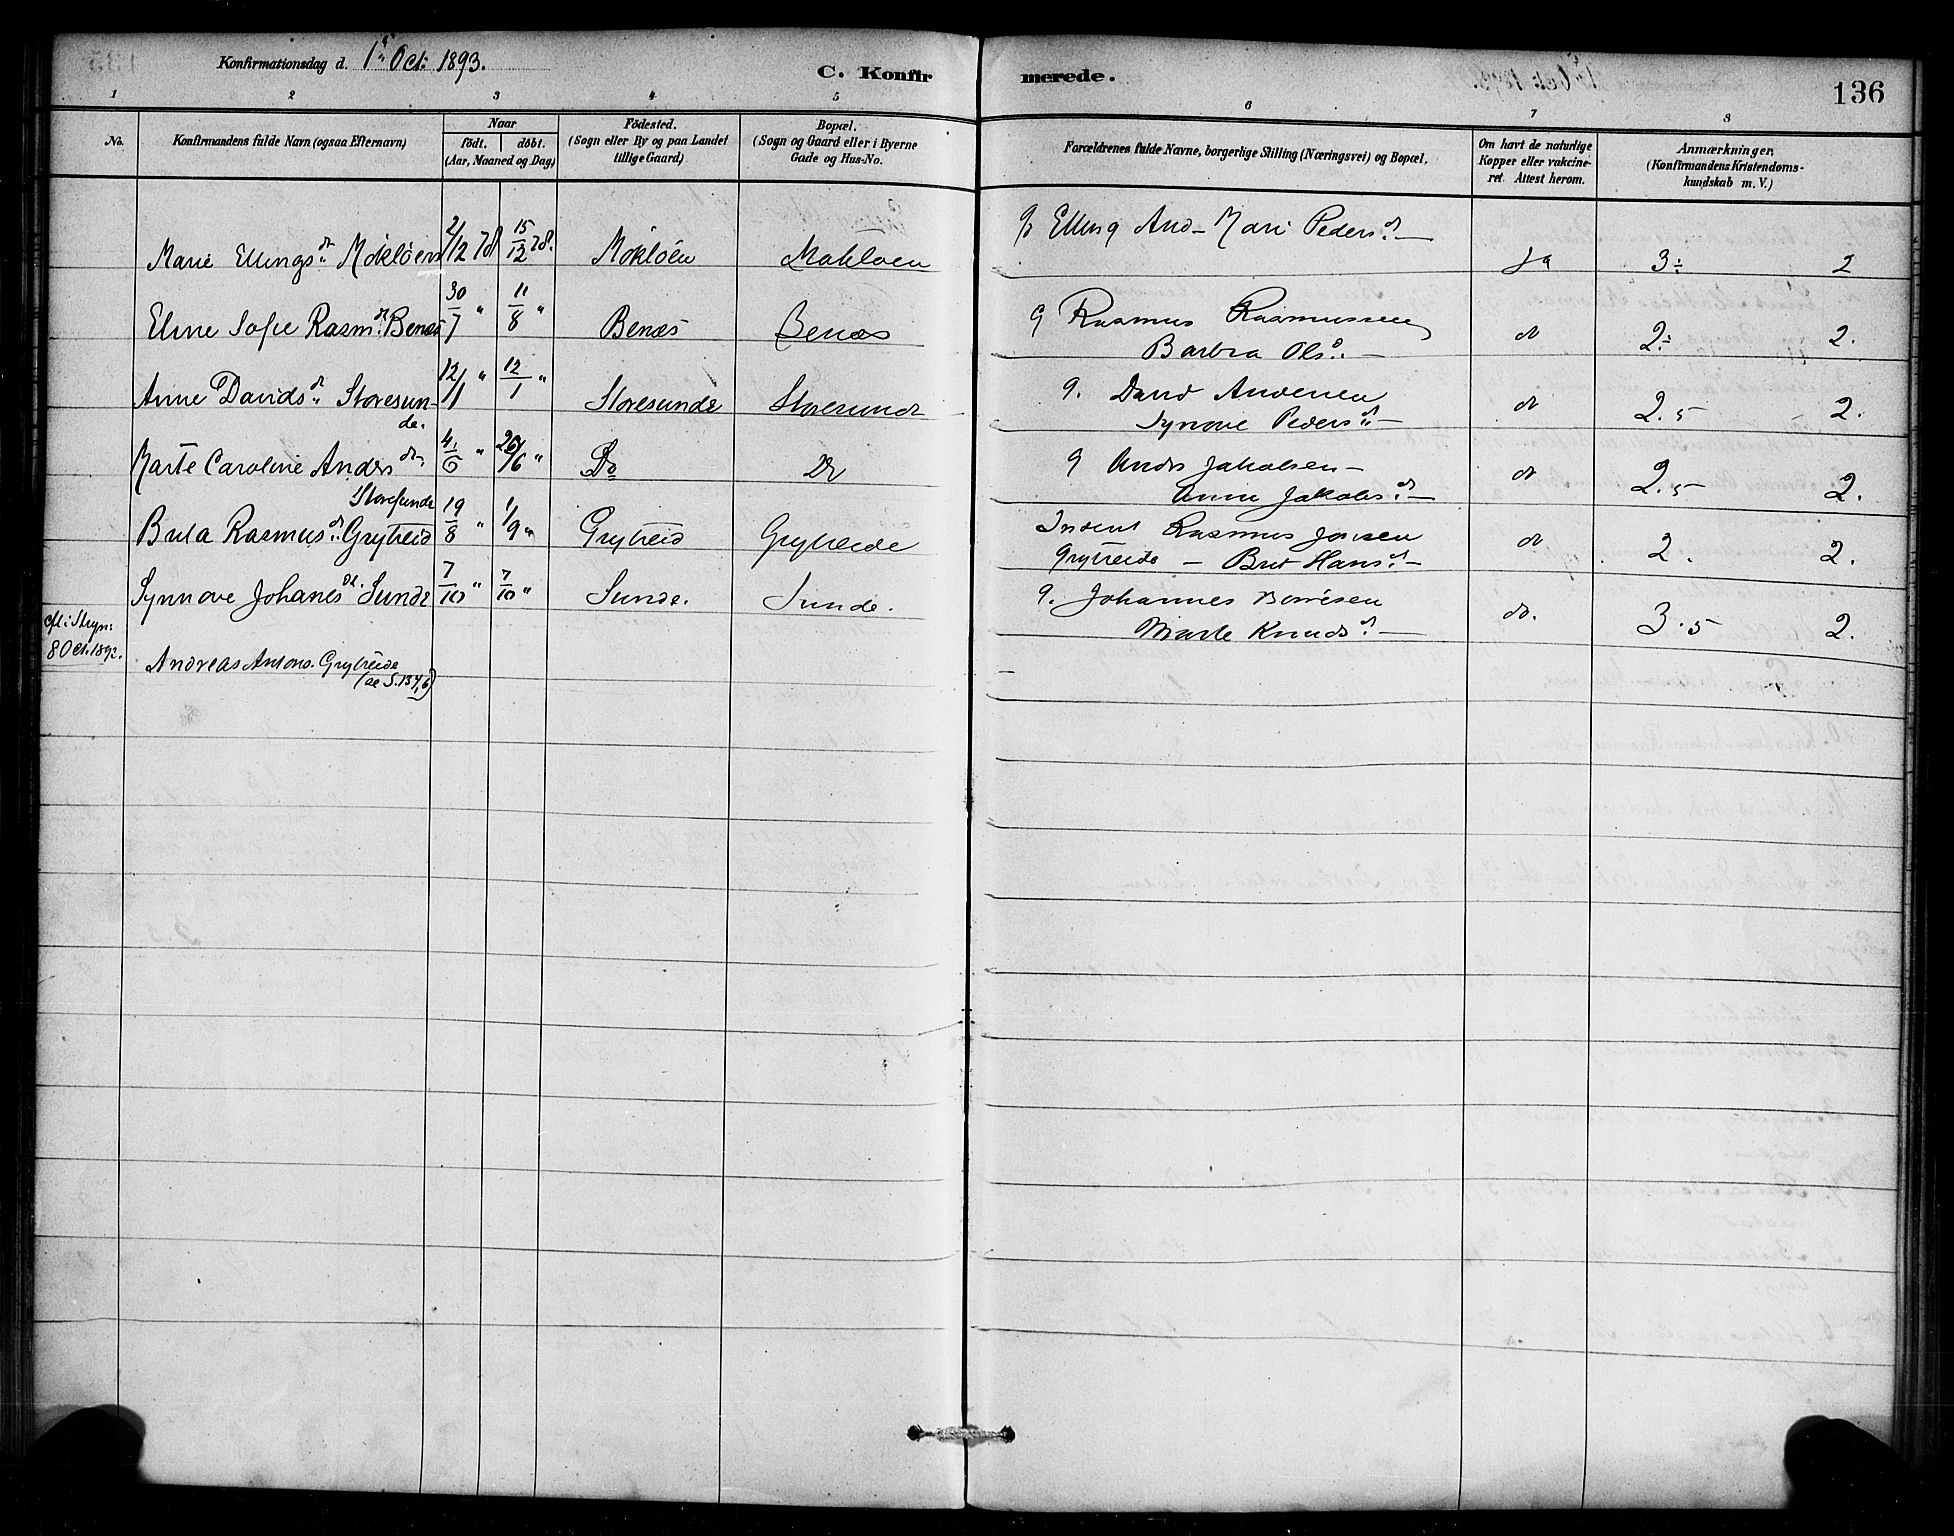 Konfirmationsdag d. 1ste Oct: 1893.
C. Konfirmerede.
136
1 2 3 4 5 6 7 8
No.
Konfirmandens fulde Navn (ogsaa Efternavn)
Naar
födt. döbt.
(Aar, Maaned og Dag)
Födested.
(Sogn eller By og paa Landet
tillige Gaard)
Bopæl.
(Sogn og Gaard eller i Byerne
Gade og Hus-No.
Forældrenes fulde Navne, borgerlige Stilling (Næringsvei) og Bopæl.
Om havt de naturlige
Kopper eller vakcine-
ret. Attest herom.
Anmærkninger,
(Konfirmandens Kristendoms-
kundskab m. V.)
Marie Ellingsdr. Mökløen 2/12 78 15/12 78. Mökløen Mökløen G Elling And - Mari Pedersd. — Ja 3÷ 2
Eline Sofie Rasm.d. Benæs 30/7 " 11/8 " Benæs Benæs G Rasmus Rasmussen
Barbra Olsd. — do 2÷ 2.
Anne Davidsd. Storesun-
de. 12/1 " 12/1 " Storesunde Storesunde G. David Andersen
Synnove Pedersd. — do 2.5 2.
Marte Caroline Andersdr.
Storesunde 4/6 " 26/6 " Do Do G Anders Jakobsen —
Anne Jakobsd. — do 2.5 2.
Brita Rasmusd. Grytreid 19/8 " 1/9 " Grytreid Grytreide Inderst Rasmus Jonsen
Grytreide — Brit Hansd. — do 2. 2.
Synnove Johanesd. Sunde 7/10 " 7/10 " Sunde. Sunde. G. Johannes Borresen
Marte Knudsd. — do. 3.5 2.
cfl: Stryn:
8 Oct. 1892.
Andreas Antons. Grytreide
(se S. 134,6)